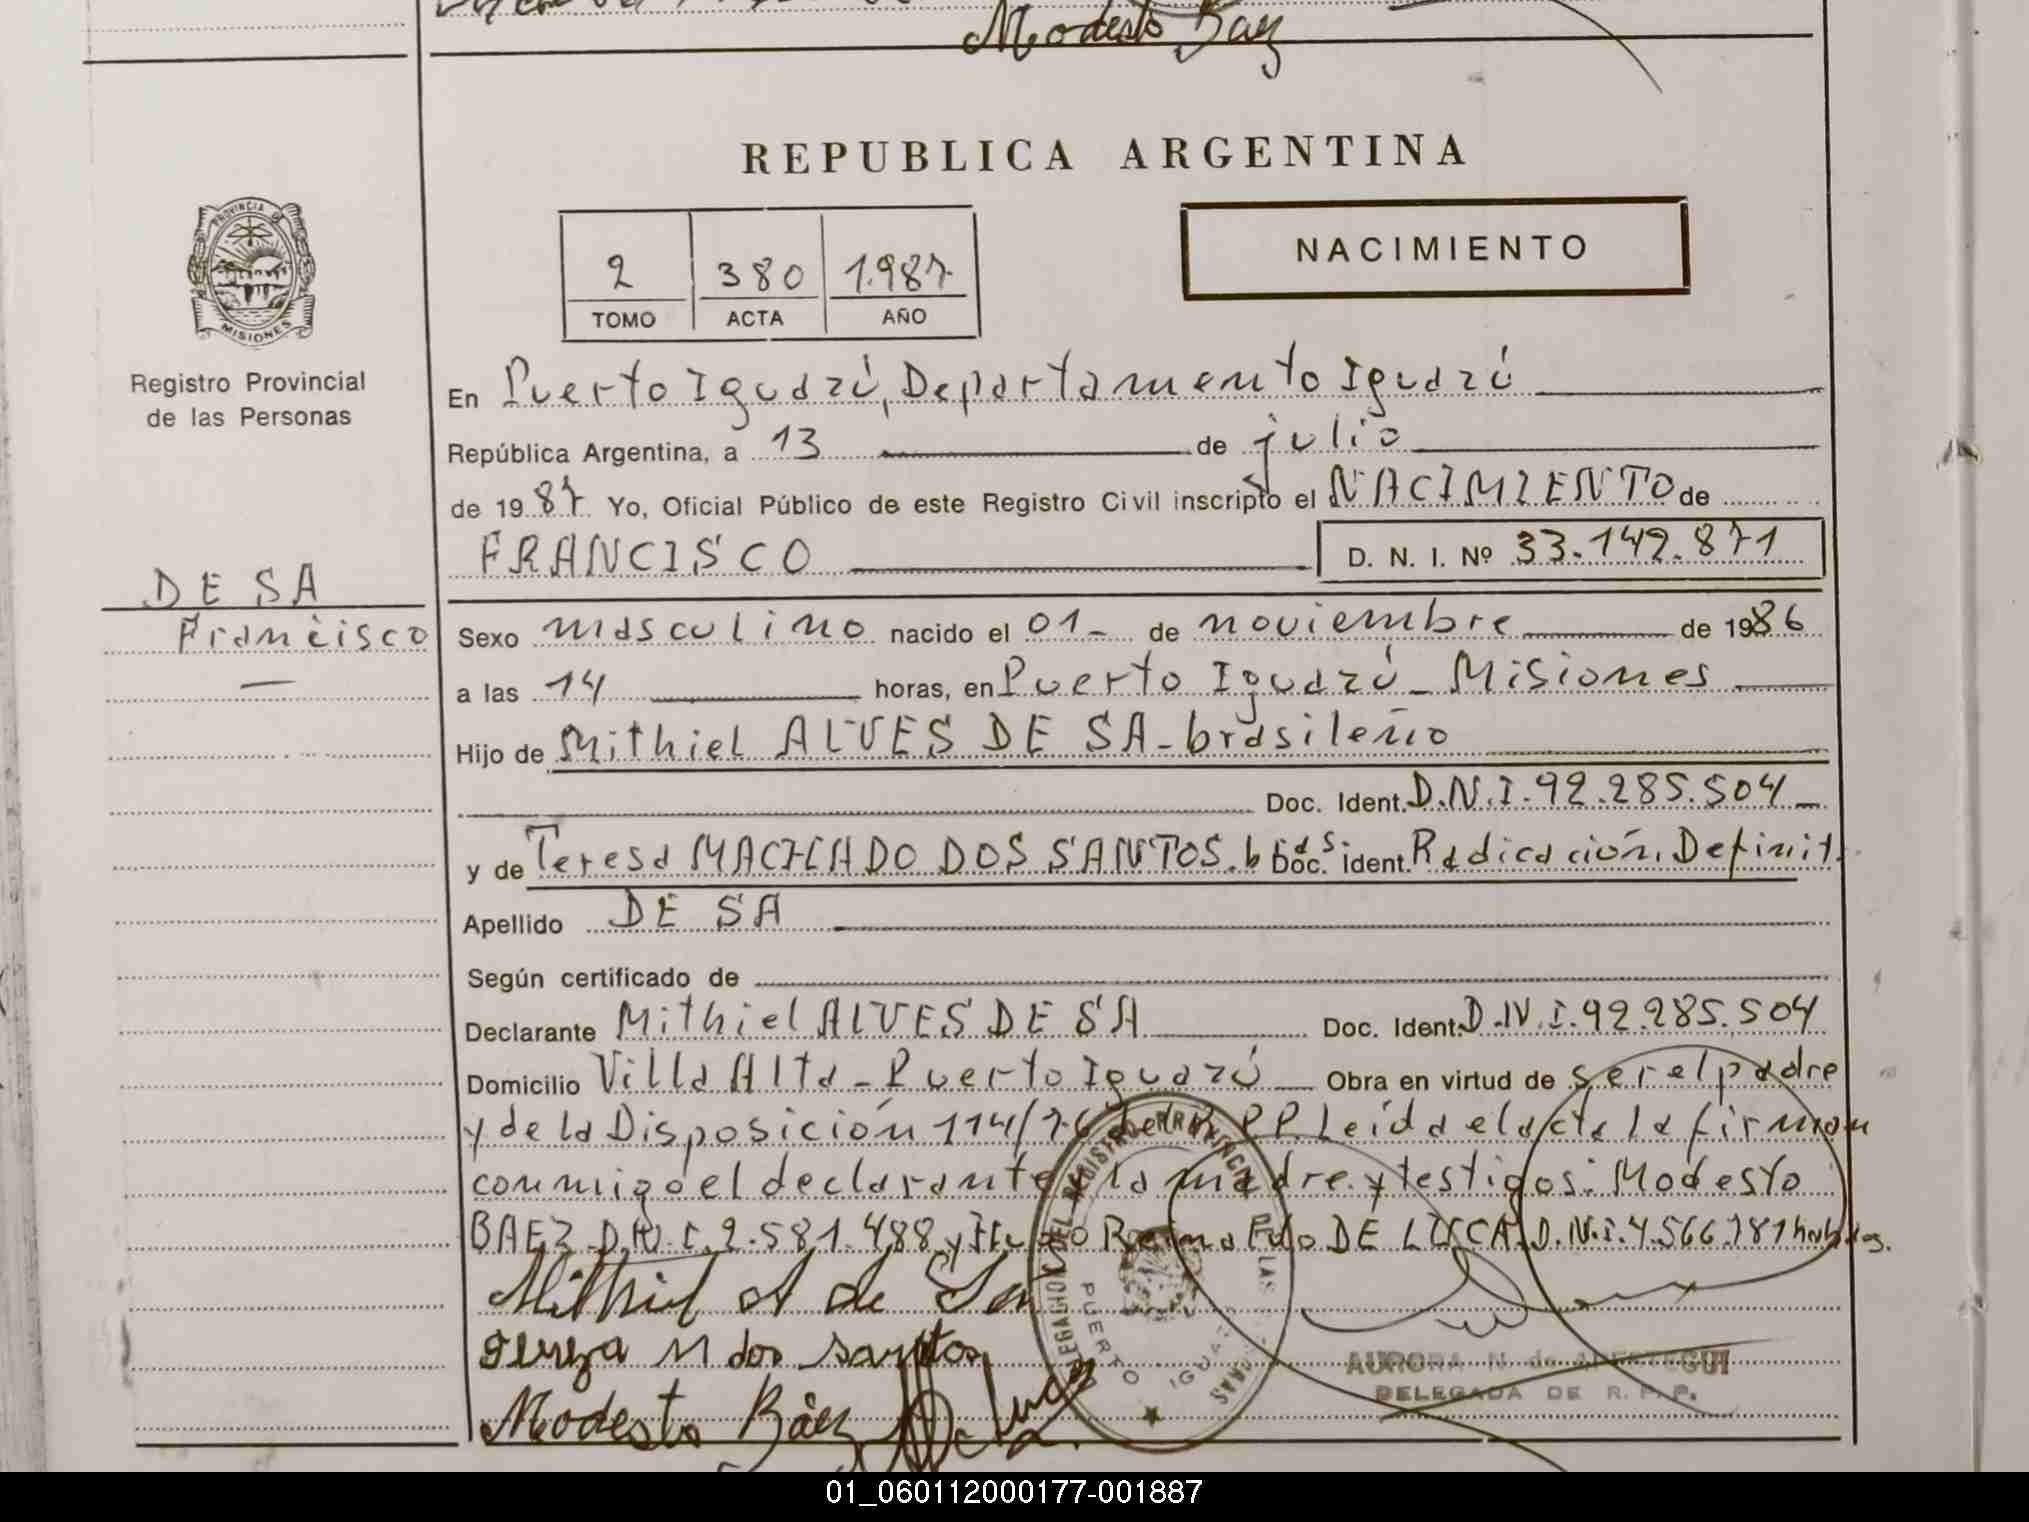 Modesto Baez
REPUBLICA ARGENTINA
NACIMIENTO
2 380 1.987
TOMO ACTA AÑO
PROVINCIA DE
MISIONES
Registro Provincial
de las Personas
En Puerto Iguazú, Departamento Iguazú
República Argentina, a 13 de julio
de 1987 Yo, Oficial Público de este Registro Civil inscripto el NACIMIENTO de
FRANCISCO D. N. I. Nº 33.142.871
DE SA
Francisco
Sexo masculino nacido el 01- de noviembre de 1986
a las 14 horas, en Puerto Iguazú - Misiones
Hijo de Mithiel ALVES DE SA - brasileño
Doc. Ident. D.N.I. 92.285.504
y de Teresa MACHADO DOS SANTOS. bras. Doc. ident. Radicación. Definit.
Apellido DE SA
Según certificado de
Declarante Mithiel ALVES DE SA Doc. Ident. D.N.I. 92.285.504
Domicilio Villa Alta - Puerto Iguazú Obra en virtud de ser el padre
y de la Disposición 114/76 del R.P.P. Leída el acta la firman
conmigo el declarante la madre y testigos: Modesto
BAEZ D.N.I. 2.581.488 y DE LUCCA D.N.I. 4.566.781
Mithiel A de Sa
Tereza M dos santos
Modesto Báez
DELEGACION DEL REGISTRO PROVINCIAL DE LAS PERSONAS
PUERTO IGUAZU
AURORA N de
DELEGADA DE R. P. P.
01_060112000177-001887